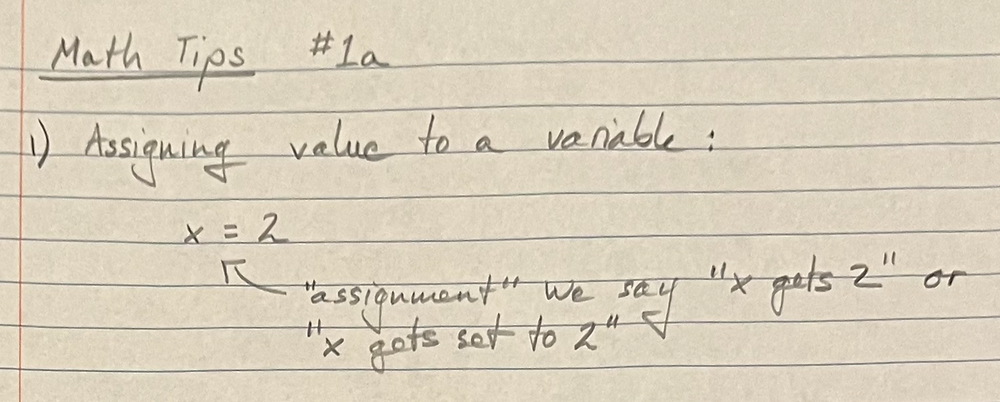 Math Tips #1a
1) Assigning value to a variable:
x = 2
"assignment" We say "x gets 2" or
"x gets set to 2"